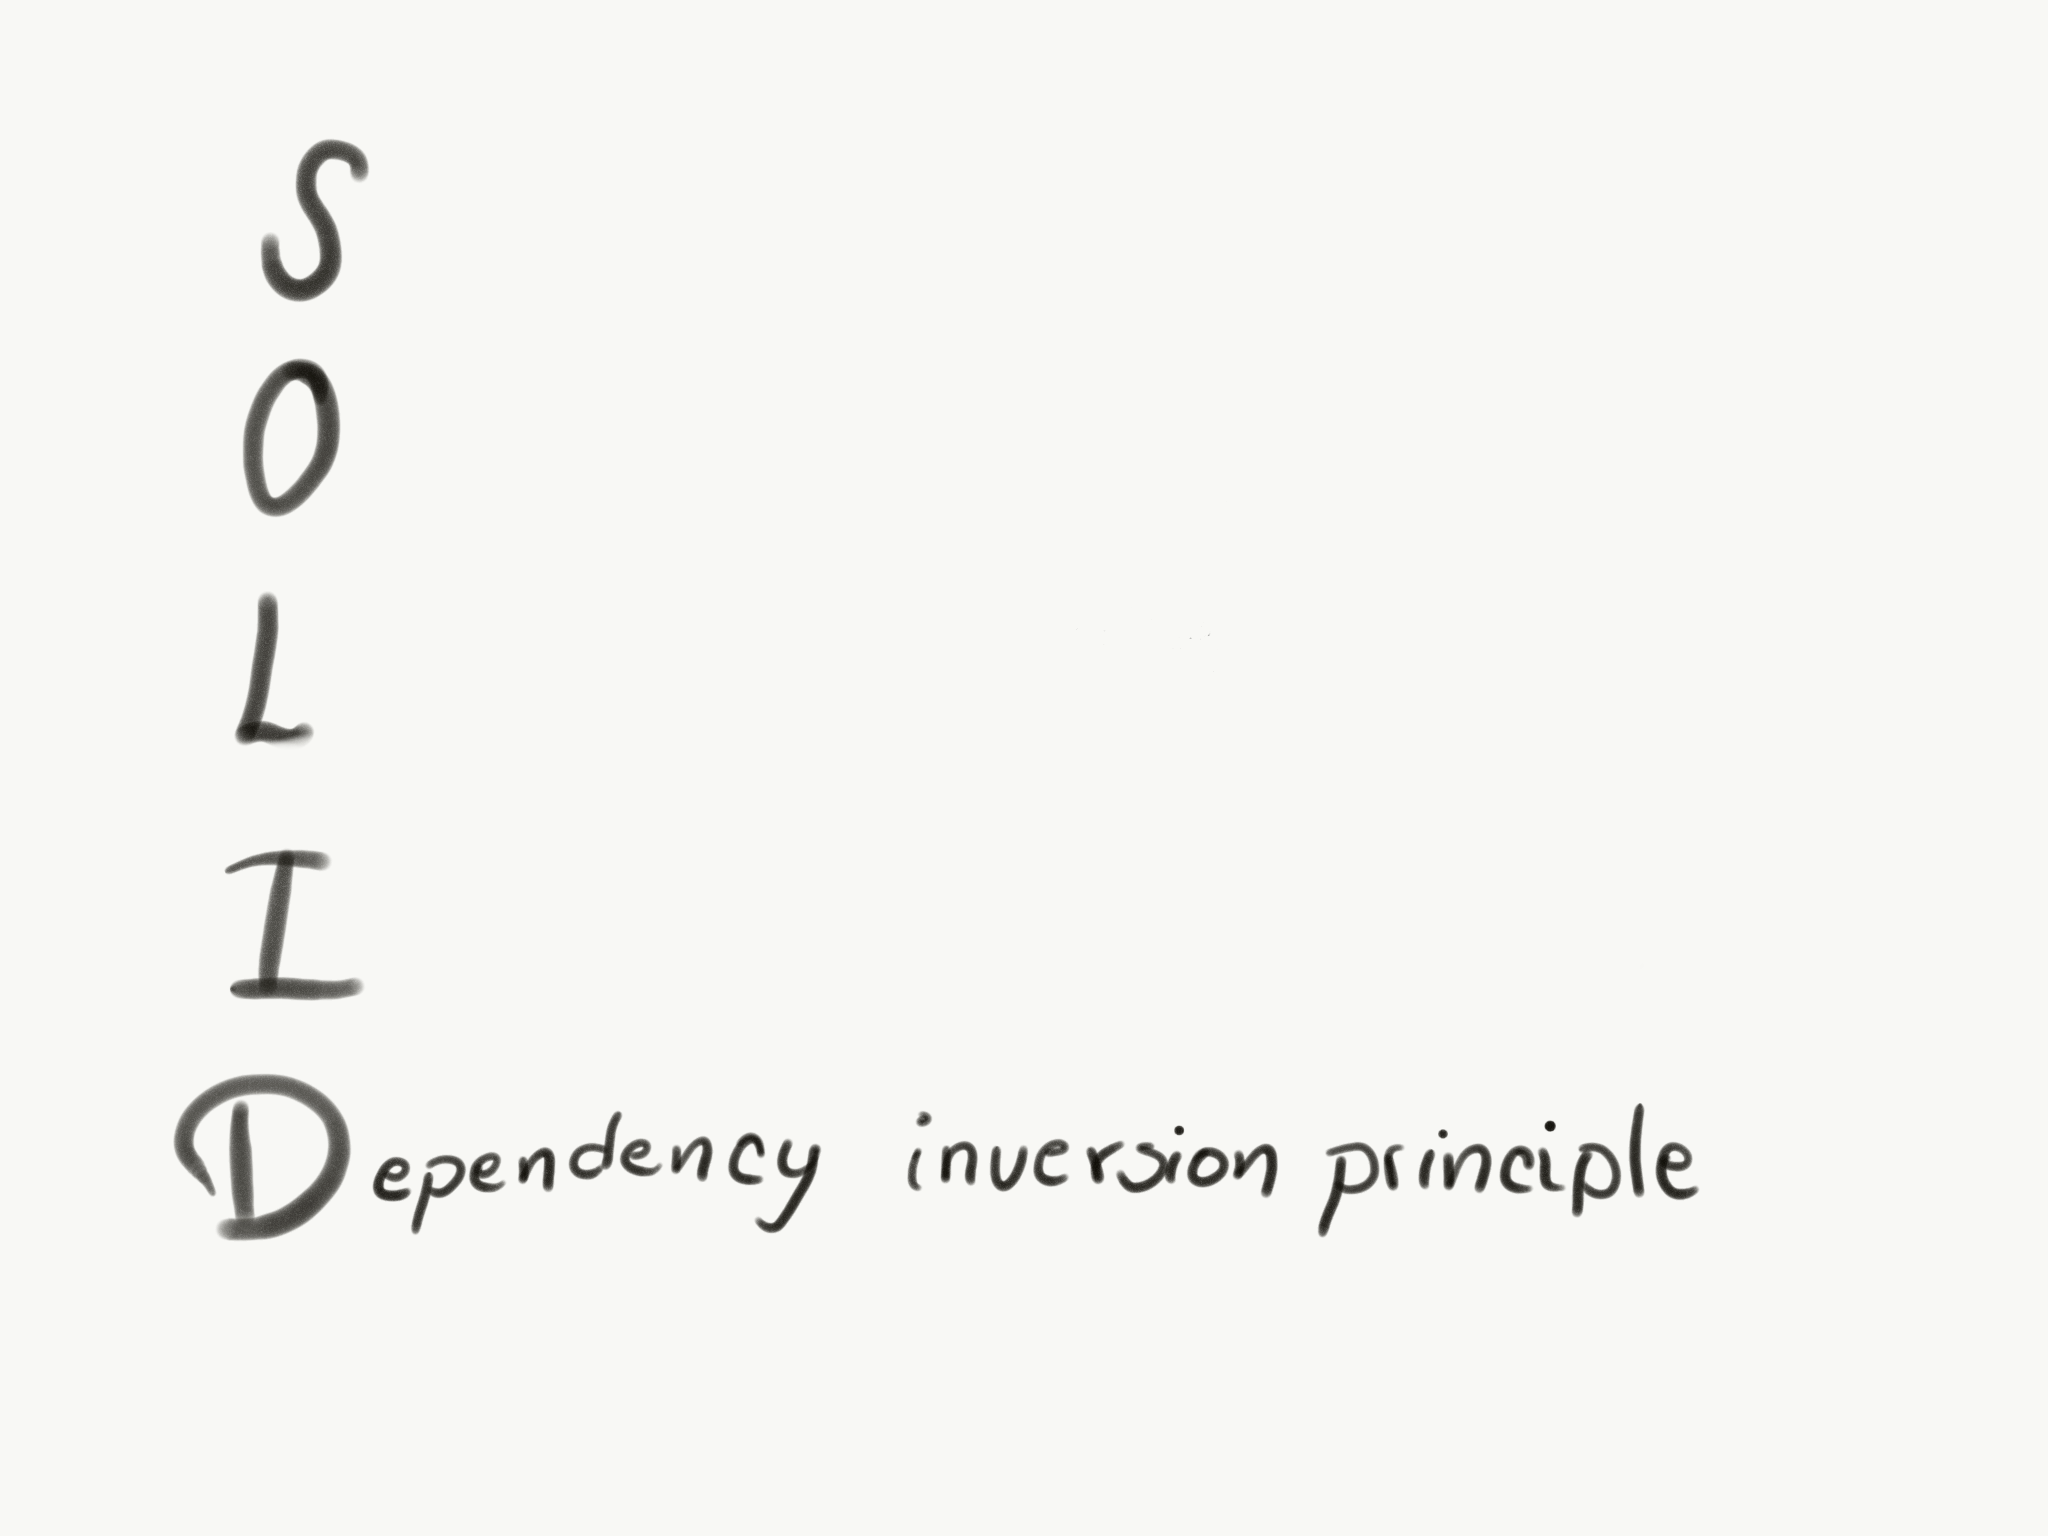 S
O
L
I
Dependency inversion principle